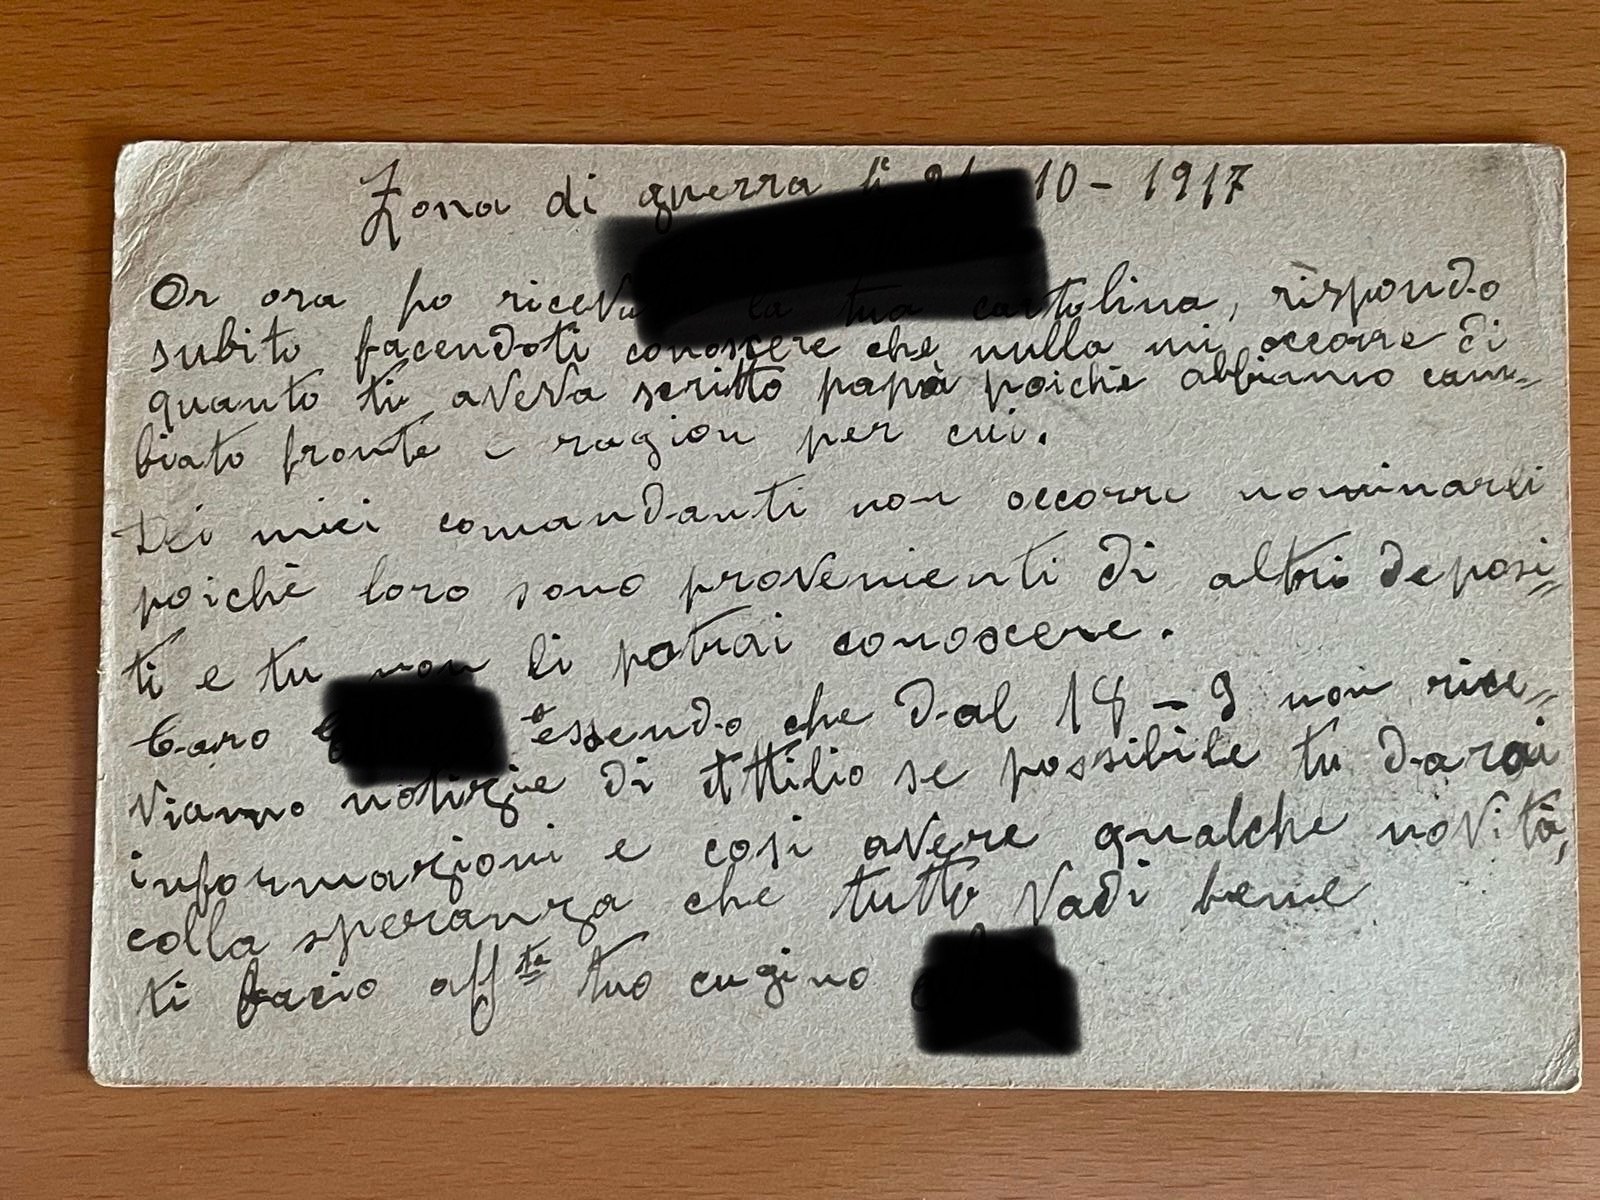 Zona di guerra li 10 - 1917
Or ora po la tua cartolina, rispondo
subito facendoti conoscere che nulla mi occorre di
quanto ti aveva scritto papà poichè abbiamo cam=
biato fronte e ragion per cui.
Dei miei comandanti non occorre nominarli
poichè loro sono provenienti di altri deposi=
ti e tu non li potrai conoscere.
Caro essendo che dal 18 - 9 non rice=
viamo notizie di Attilio se possibile tu darai
informazioni e cosi avere qualche novità,
colla speranza che tutto Vadi bene
ti bacio aff.to tuo cugino